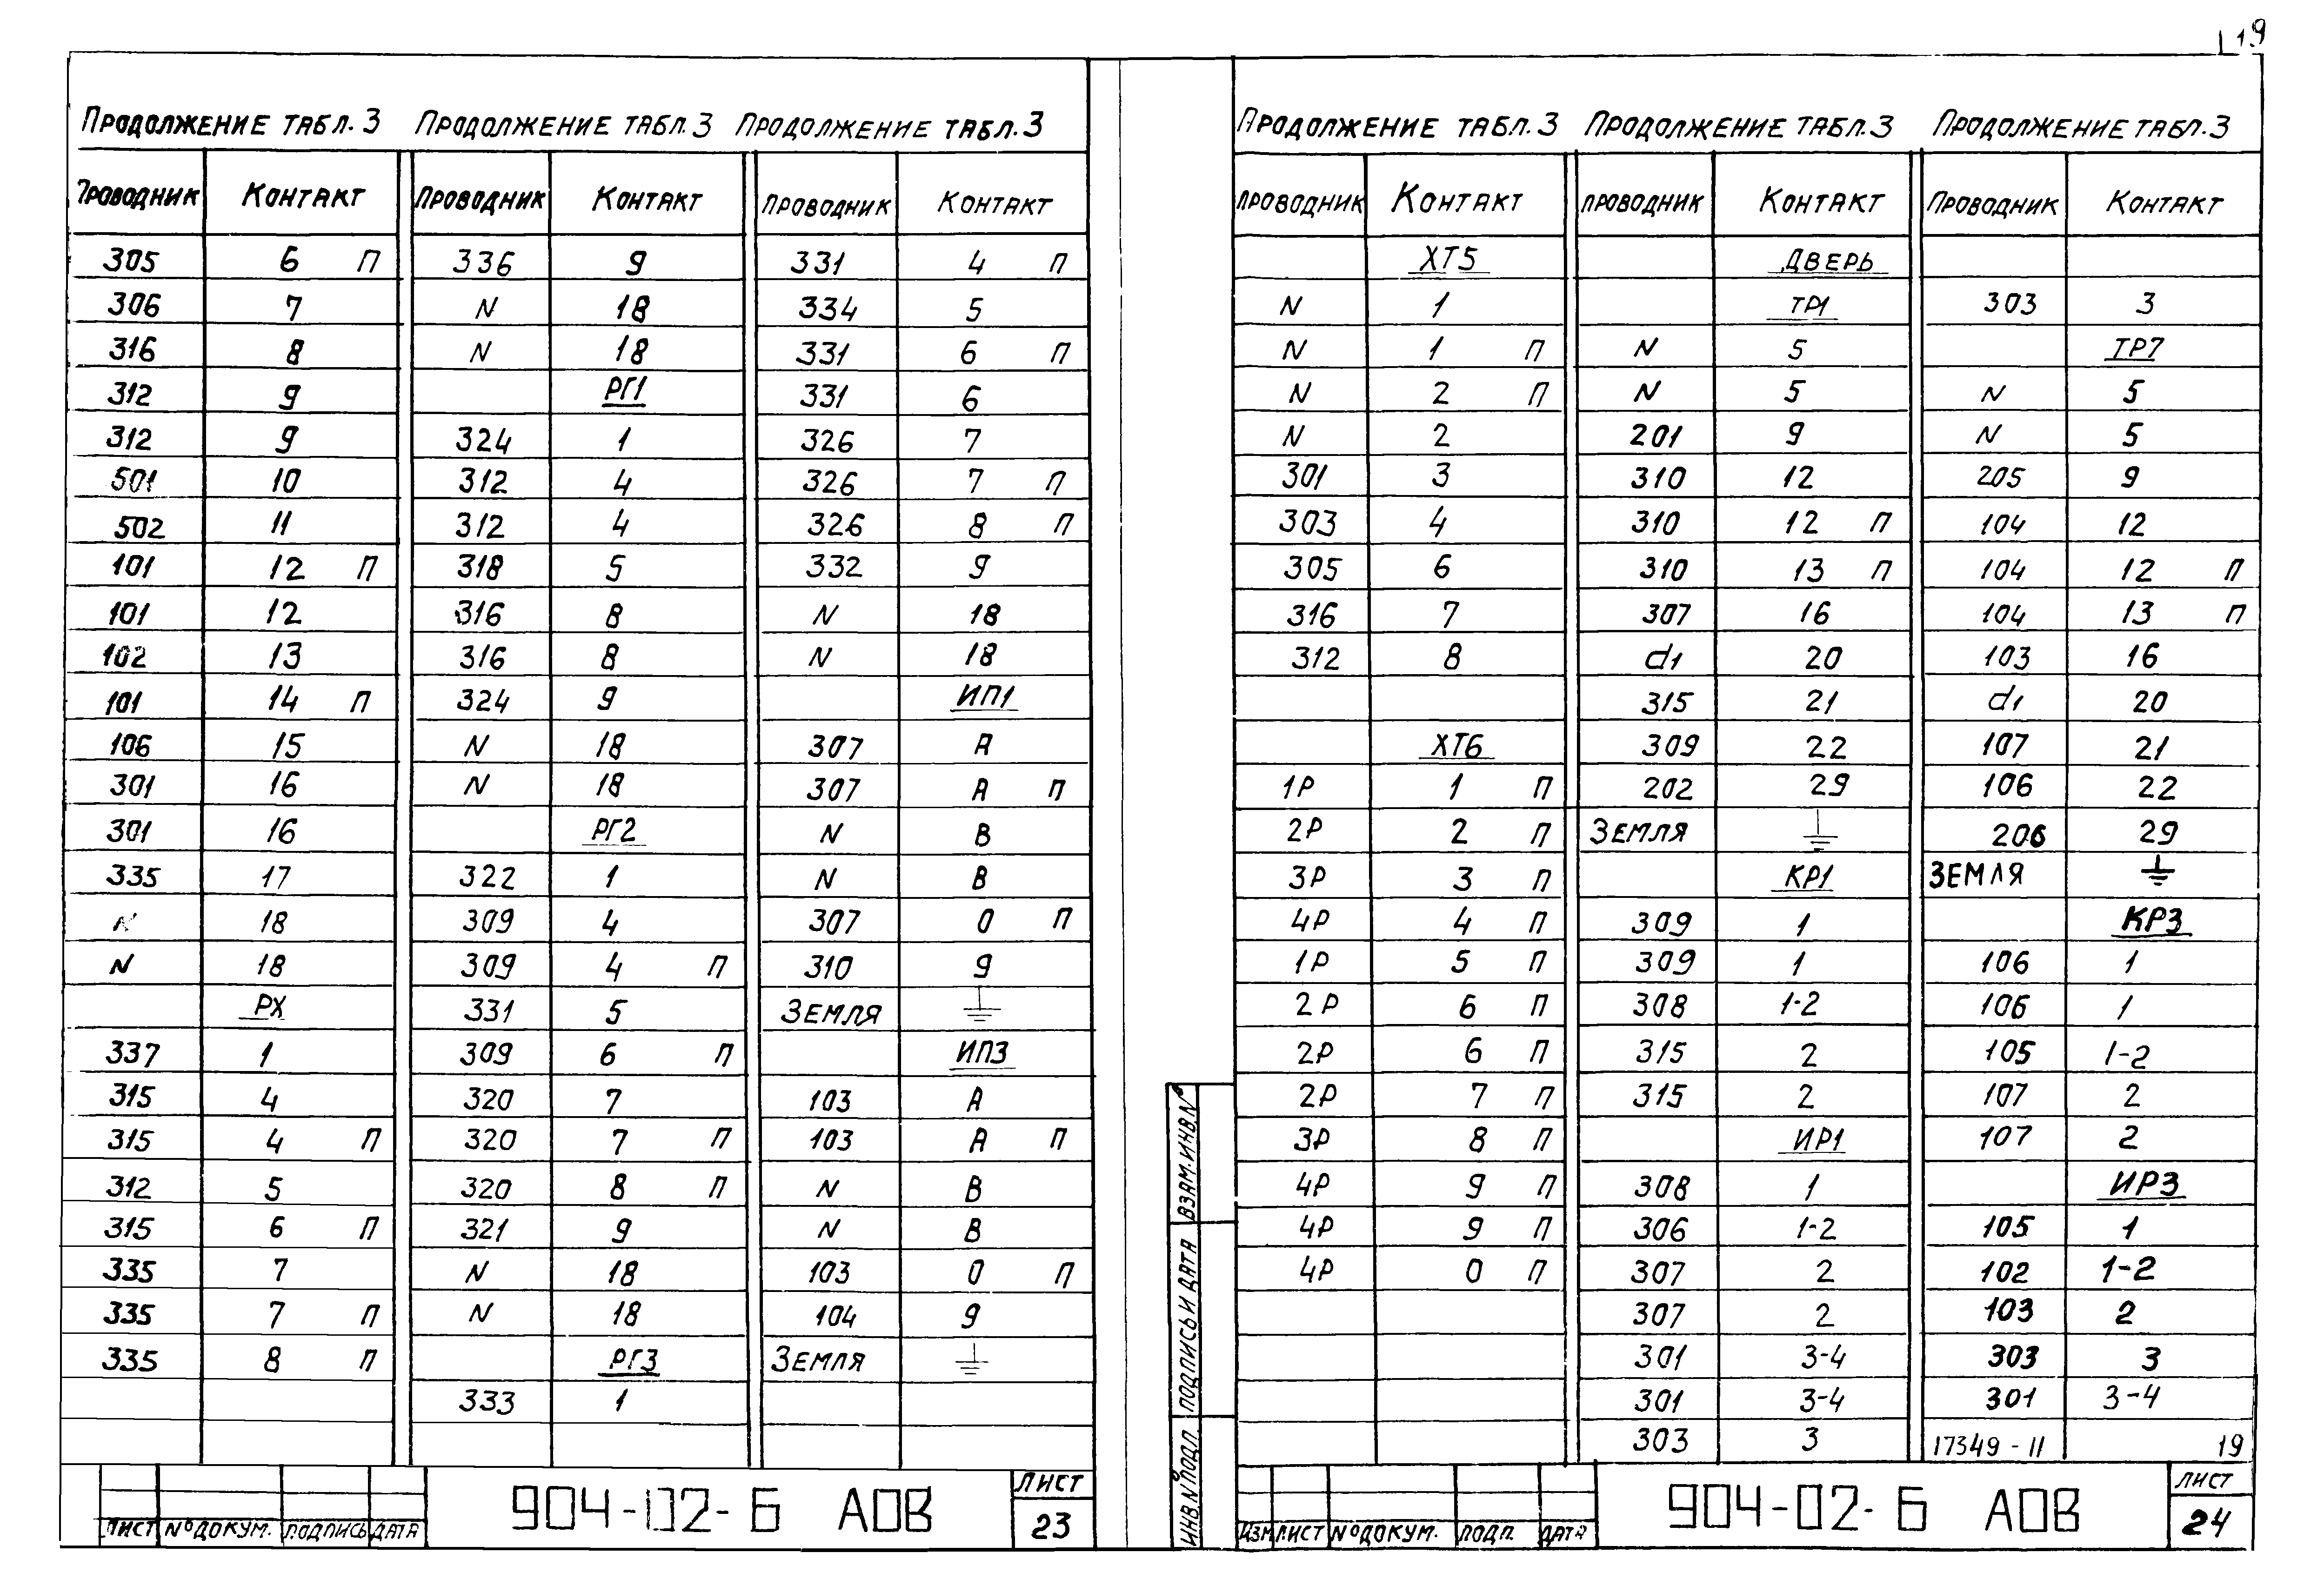 19
Продолжение табл. 3 Продолжение табл. 3 Продолжение табл. 3
Проводник Контакт Проводник Контакт Проводник Контакт
305 6 П 336 9 331 4 П
306 7 N 18 334 5
316 8 N 18 331 6 П
312 9 РГ1 331 6
312 9 324 1 326 7
501 10 312 4 326 7 П
502 11 312 4 326 8 П
101 12 П 318 5 332 9
101 12 316 8 N 18
102 13 316 8 N 18
101 14 П 324 9 ИП1
106 15 N 18 307 А
301 16 N 18 307 А П
301 16 РГ2 N В
335 17 322 1 N В
N 18 309 4 307 0 П
N 18 309 4 П 310 9
РХ 331 5 Земля
337 1 309 6 П ИП3
315 4 320 7 103 А
315 4 П 320 7 П 103 А П
312 5 320 8 П N В
315 6 П 321 9 N В
335 7 N 18 103 0 П
335 7 П N 18 104 9
335 8 П РГ3 Земля
333 1
Лист № докум. Подпись Дата
904-02-6 АОВ
Лист
23
Продолжение табл. 3 Продолжение табл. 3 Продолжение табл. 3
Проводник Контакт Проводник Контакт Проводник Контакт
ХТ5 Дверь
N 1 ТР1 303 3
N 1 П N 5 ТР7
N 2 П N 5 N 5
N 2 201 9 N 5
301 3 310 12 205 9
303 4 310 12 П 104 12
305 6 310 13 П 104 12 П
316 7 307 16 104 13 П
312 8 d1 20 103 16
315 21 d1 20
ХТ6 309 22 107 21
1Р 1 П 202 29 106 22
2Р 2 П Земля 206 29
3Р 3 П КР1 Земля
4Р 4 П 309 1 КР3
1Р 5 П 309 1 106 1
2Р 6 П 308 1-2 106 1
2Р 6 П 315 2 105 1-2
2Р 7 П 315 2 107 2
3Р 8 П ИР1 107 2
4Р 9 П 308 1 ИР3
4Р 9 П 306 1-2 105 1
4Р 0 П 307 2 102 1-2
307 2 103 2
301 3-4 303 3
301 3-4 301 3-4
303 3 17349-11 19
Инв. № подл. Подпись и дата Взам. инв. №
Изм Лист № докум. Подп. Дата
904-02-6 АОВ
Лист
24